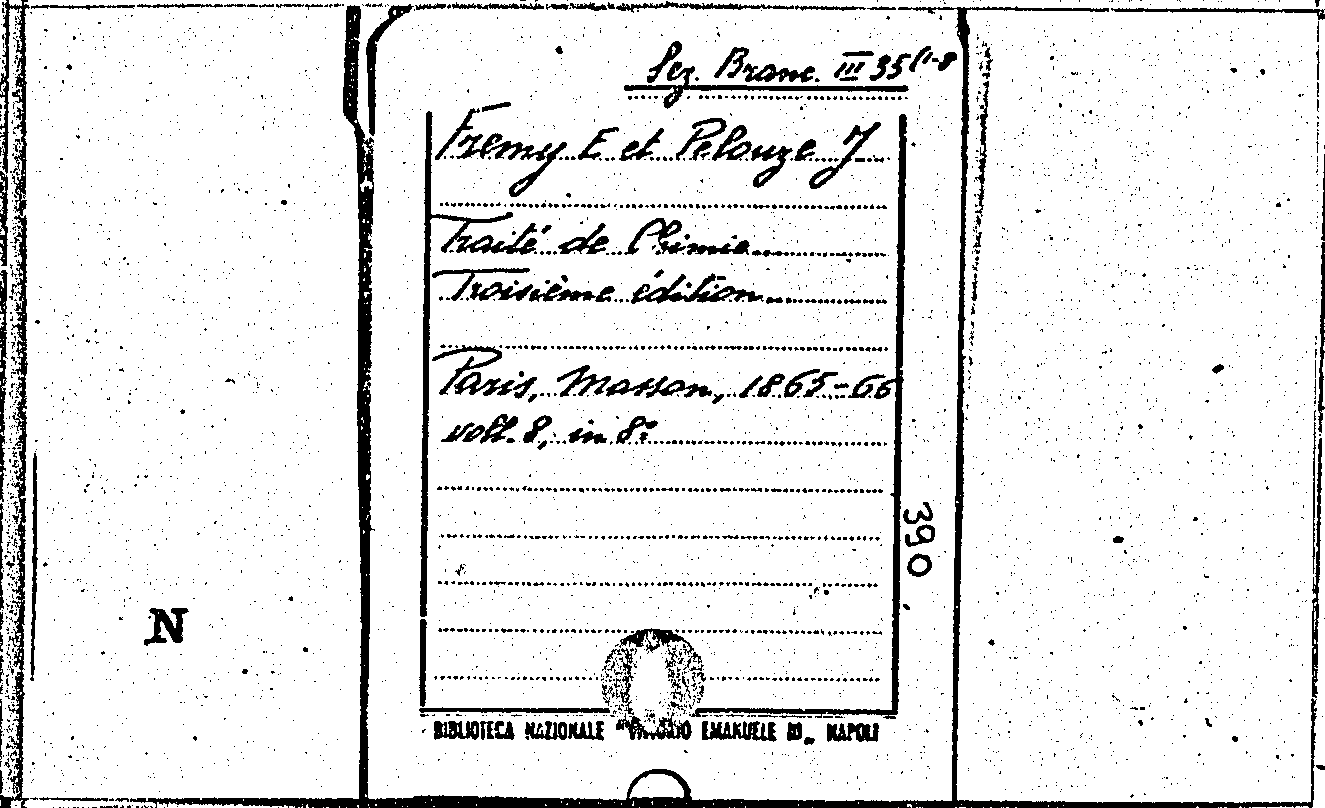 Sez. Branc. III 35 (1-8
Fremy E et Pelouze J
Traité de Chimie
Troisième édition
Paris, Masson, 1865-66
voll. 8, in 8º
390
N
BIBLIOTECA NAZIONALE "VITTORIO EMANUELE III„ NAPOLI